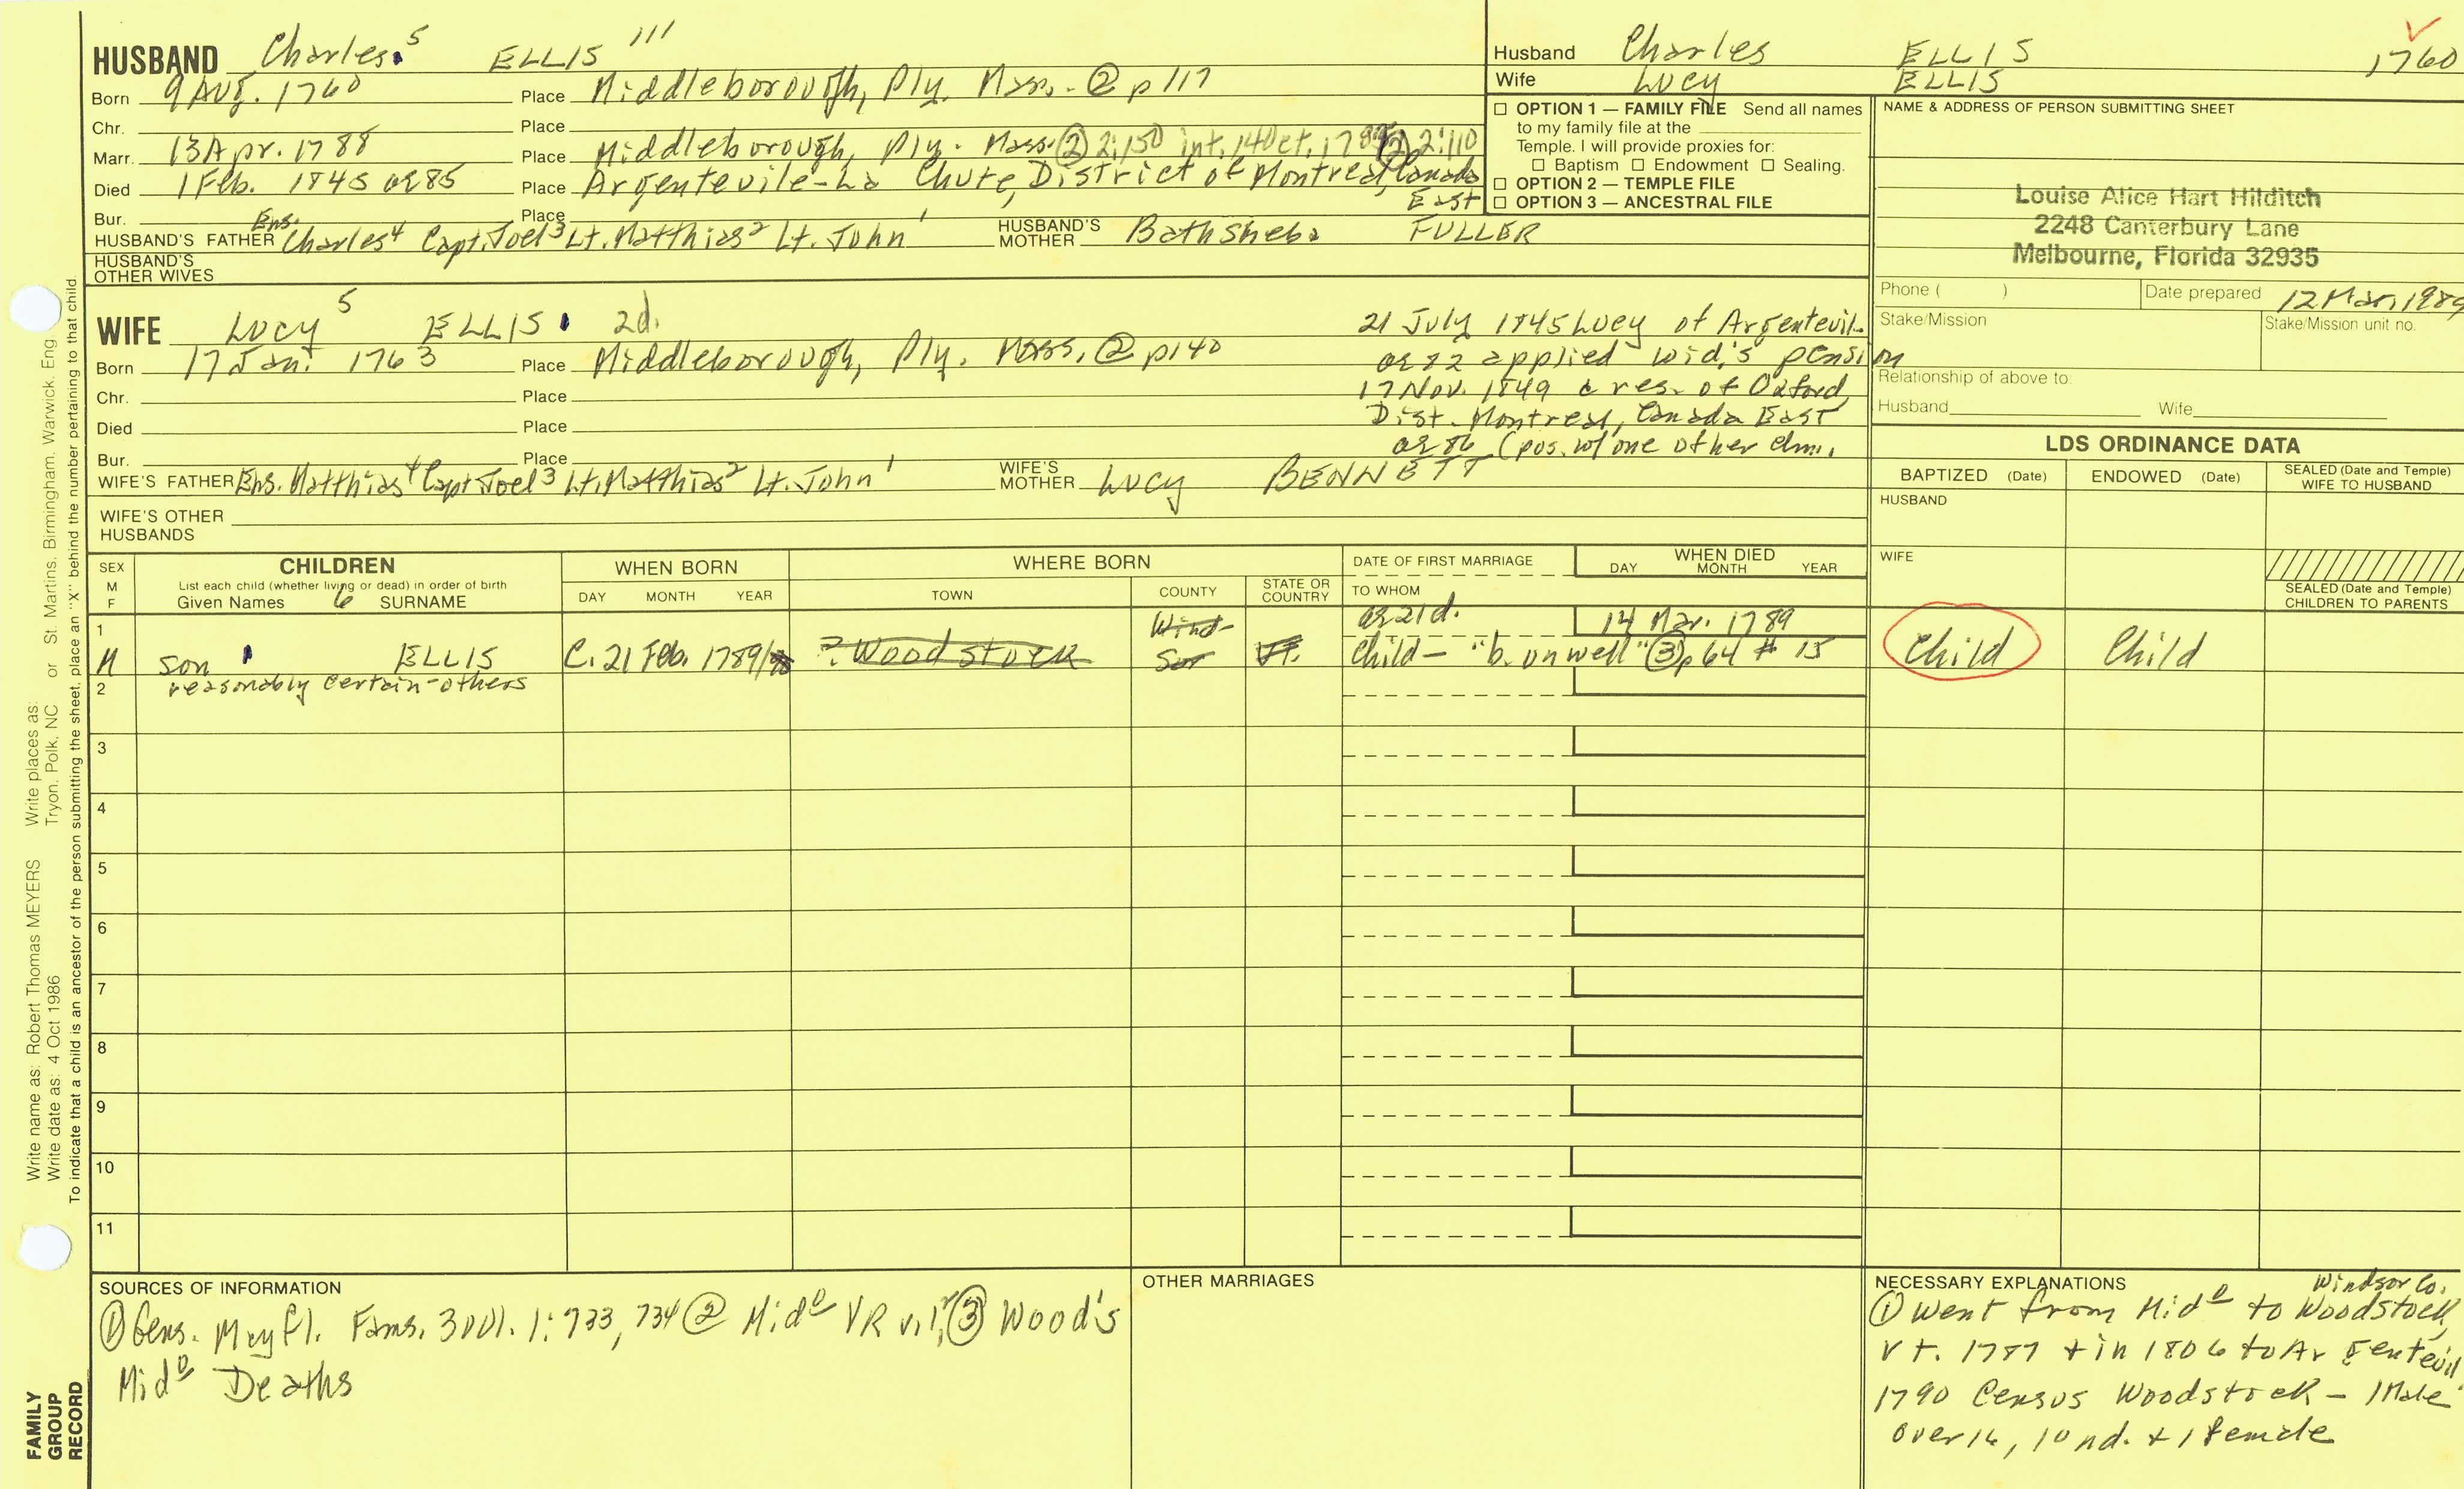 HUSBAND Charles 5 ELLIS III
Born 9 Aug. 1760 Place Middleborough, Ply. Mass. @ p 117
Chr. Place
Marr. 13 Apr. 1788 Place Middleborough, Ply. Mass. (2) 2:150 int. 14 Oct. (2) 2:110
Died 1 Feb. 1845 ae 85 Place Argentevile-La Chute, District of Montreal, Canada
East
Bur. Place
HUSBAND'S FATHER Ens. Charles 4 Capt. Joel 3 Lt. Matthias 2 Lt. John 1 HUSBAND'S MOTHER Bathsheba FULLER
HUSBAND'S OTHER WIVES
WIFE Lucy 5 ELLIS 2d.
Born 17 Jan. 1763 Place Middleborough, Ply. Mass. @ p 140
Chr. Place
Died Place
Bur. Place
21 July 1845 Lucy of Argentevil
ae 82 applied wid.'s pension
17 Nov. 1849 a res. of Oxford,
Dist. Montreal, Canada East
ae 86 (pos. w/ one other dm.
WIFE'S FATHER Ens. Matthias 4 Capt Joel 3 Lt. Matthias 2 Lt. John 1 WIFE'S MOTHER Lucy BENNETT
WIFE'S OTHER HUSBANDS
Husband Charles ELLIS 1760
Wife Lucy ELLIS
☐ OPTION 1 — FAMILY FILE Send all names
to my family file at the
Temple. I will provide proxies for:
☐ Baptism ☐ Endowment ☐ Sealing.
☐ OPTION 2 — TEMPLE FILE
☐ OPTION 3 — ANCESTRAL FILE
NAME & ADDRESS OF PERSON SUBMITTING SHEET
Louise Alice Hart Hilditch
2248 Canterbury Lane
Melbourne, Florida 32935
Phone ( ) Date prepared 12 Mar, 1989
Stake/Mission Stake/Mission unit no.
Relationship of above to:
Husband Wife
LDS ORDINANCE DATA
BAPTIZED (Date) ENDOWED (Date) SEALED (Date and Temple) WIFE TO HUSBAND
HUSBAND
WIFE
SEALED (Date and Temple) CHILDREN TO PARENTS
SEX M F CHILDREN WHEN BORN WHERE BORN DATE OF FIRST MARRIAGE WHEN DIED
List each child (whether living or dead) in order of birth
Given Names 6 SURNAME DAY MONTH YEAR TOWN COUNTY STATE OR COUNTRY TO WHOM DAY MONTH YEAR
1 Wind- ae 21 d. 14 Mar. 1789
M son ELLIS C. 21 Feb. 1789/ ? Woodstock Sor Vt. Child — "b. unwell" (3) p 64 # 15 Child Child
2 reasonably certain-others
3
4
5
6
7
8
9
10
11
SOURCES OF INFORMATION
(1) Gens. Mayfl. Fams. 3 Vol. 1: 733, 734 (2) Mid° VR v.1, (3) Wood's
Mid° Deaths
OTHER MARRIAGES
NECESSARY EXPLANATIONS Windsor Co.
(1) Went from Mid° to Woodstock,
Vt. 1787 + in 1806 to Argenteuil
1790 Census Woodstock — 1 Male
over 16, 1 und. + 1 female
Write name as: Robert Thomas MEYERS Write places as:
Write date as: 4 Oct 1986 Tryon, Polk, NC or St. Martins, Birmingham, Warwick, Eng.
To indicate that a child is an ancestor of the person submitting the sheet, place an "X" behind the number pertaining to that child.
FAMILY
GROUP
RECORD